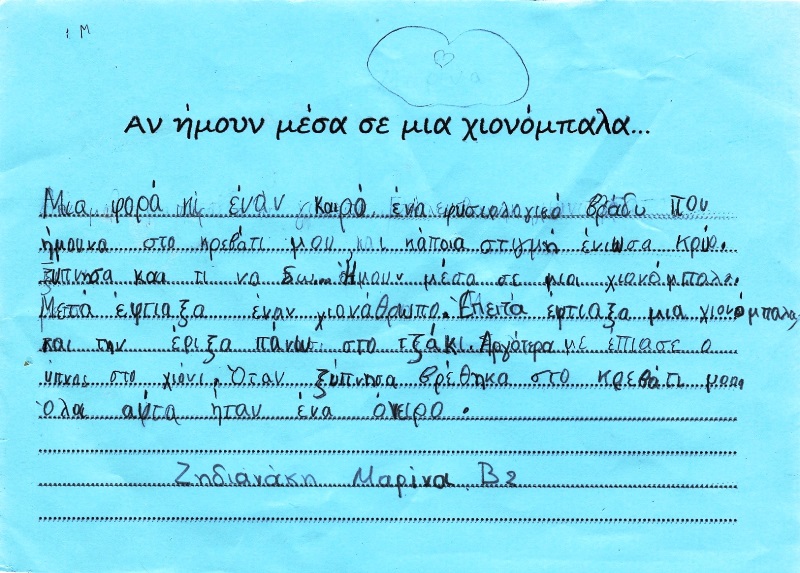 1 M
Αν ήμουν μέσα σε μια χιονόμπαλα...
Μια φορά κι έναν καιρό ένα φυσιολογικό βράδυ που
ήμουνα στο κρεβάτι μου και κάποια στιγμή ένιωσα κρύο.
Ξύπνησα και τι να δω... Ήμουν μέσα σε μια χιονόμπαλα.
Μετά έφτιαξα έναν χιονάθρωπο. Έπειτά έφτιαξα μια χιονόμπαλα
και την έριξα πάνω στο τζάκι. Αργότερα με έπιασε ο
ύπνος στο χιόνι. Όταν ξύπνησα βρέθηκα στο κρεβάτι μου.
Όλα αυτα ήταν ένα όνειρο.
Ζηδιανάκη Μαρίνα Β2